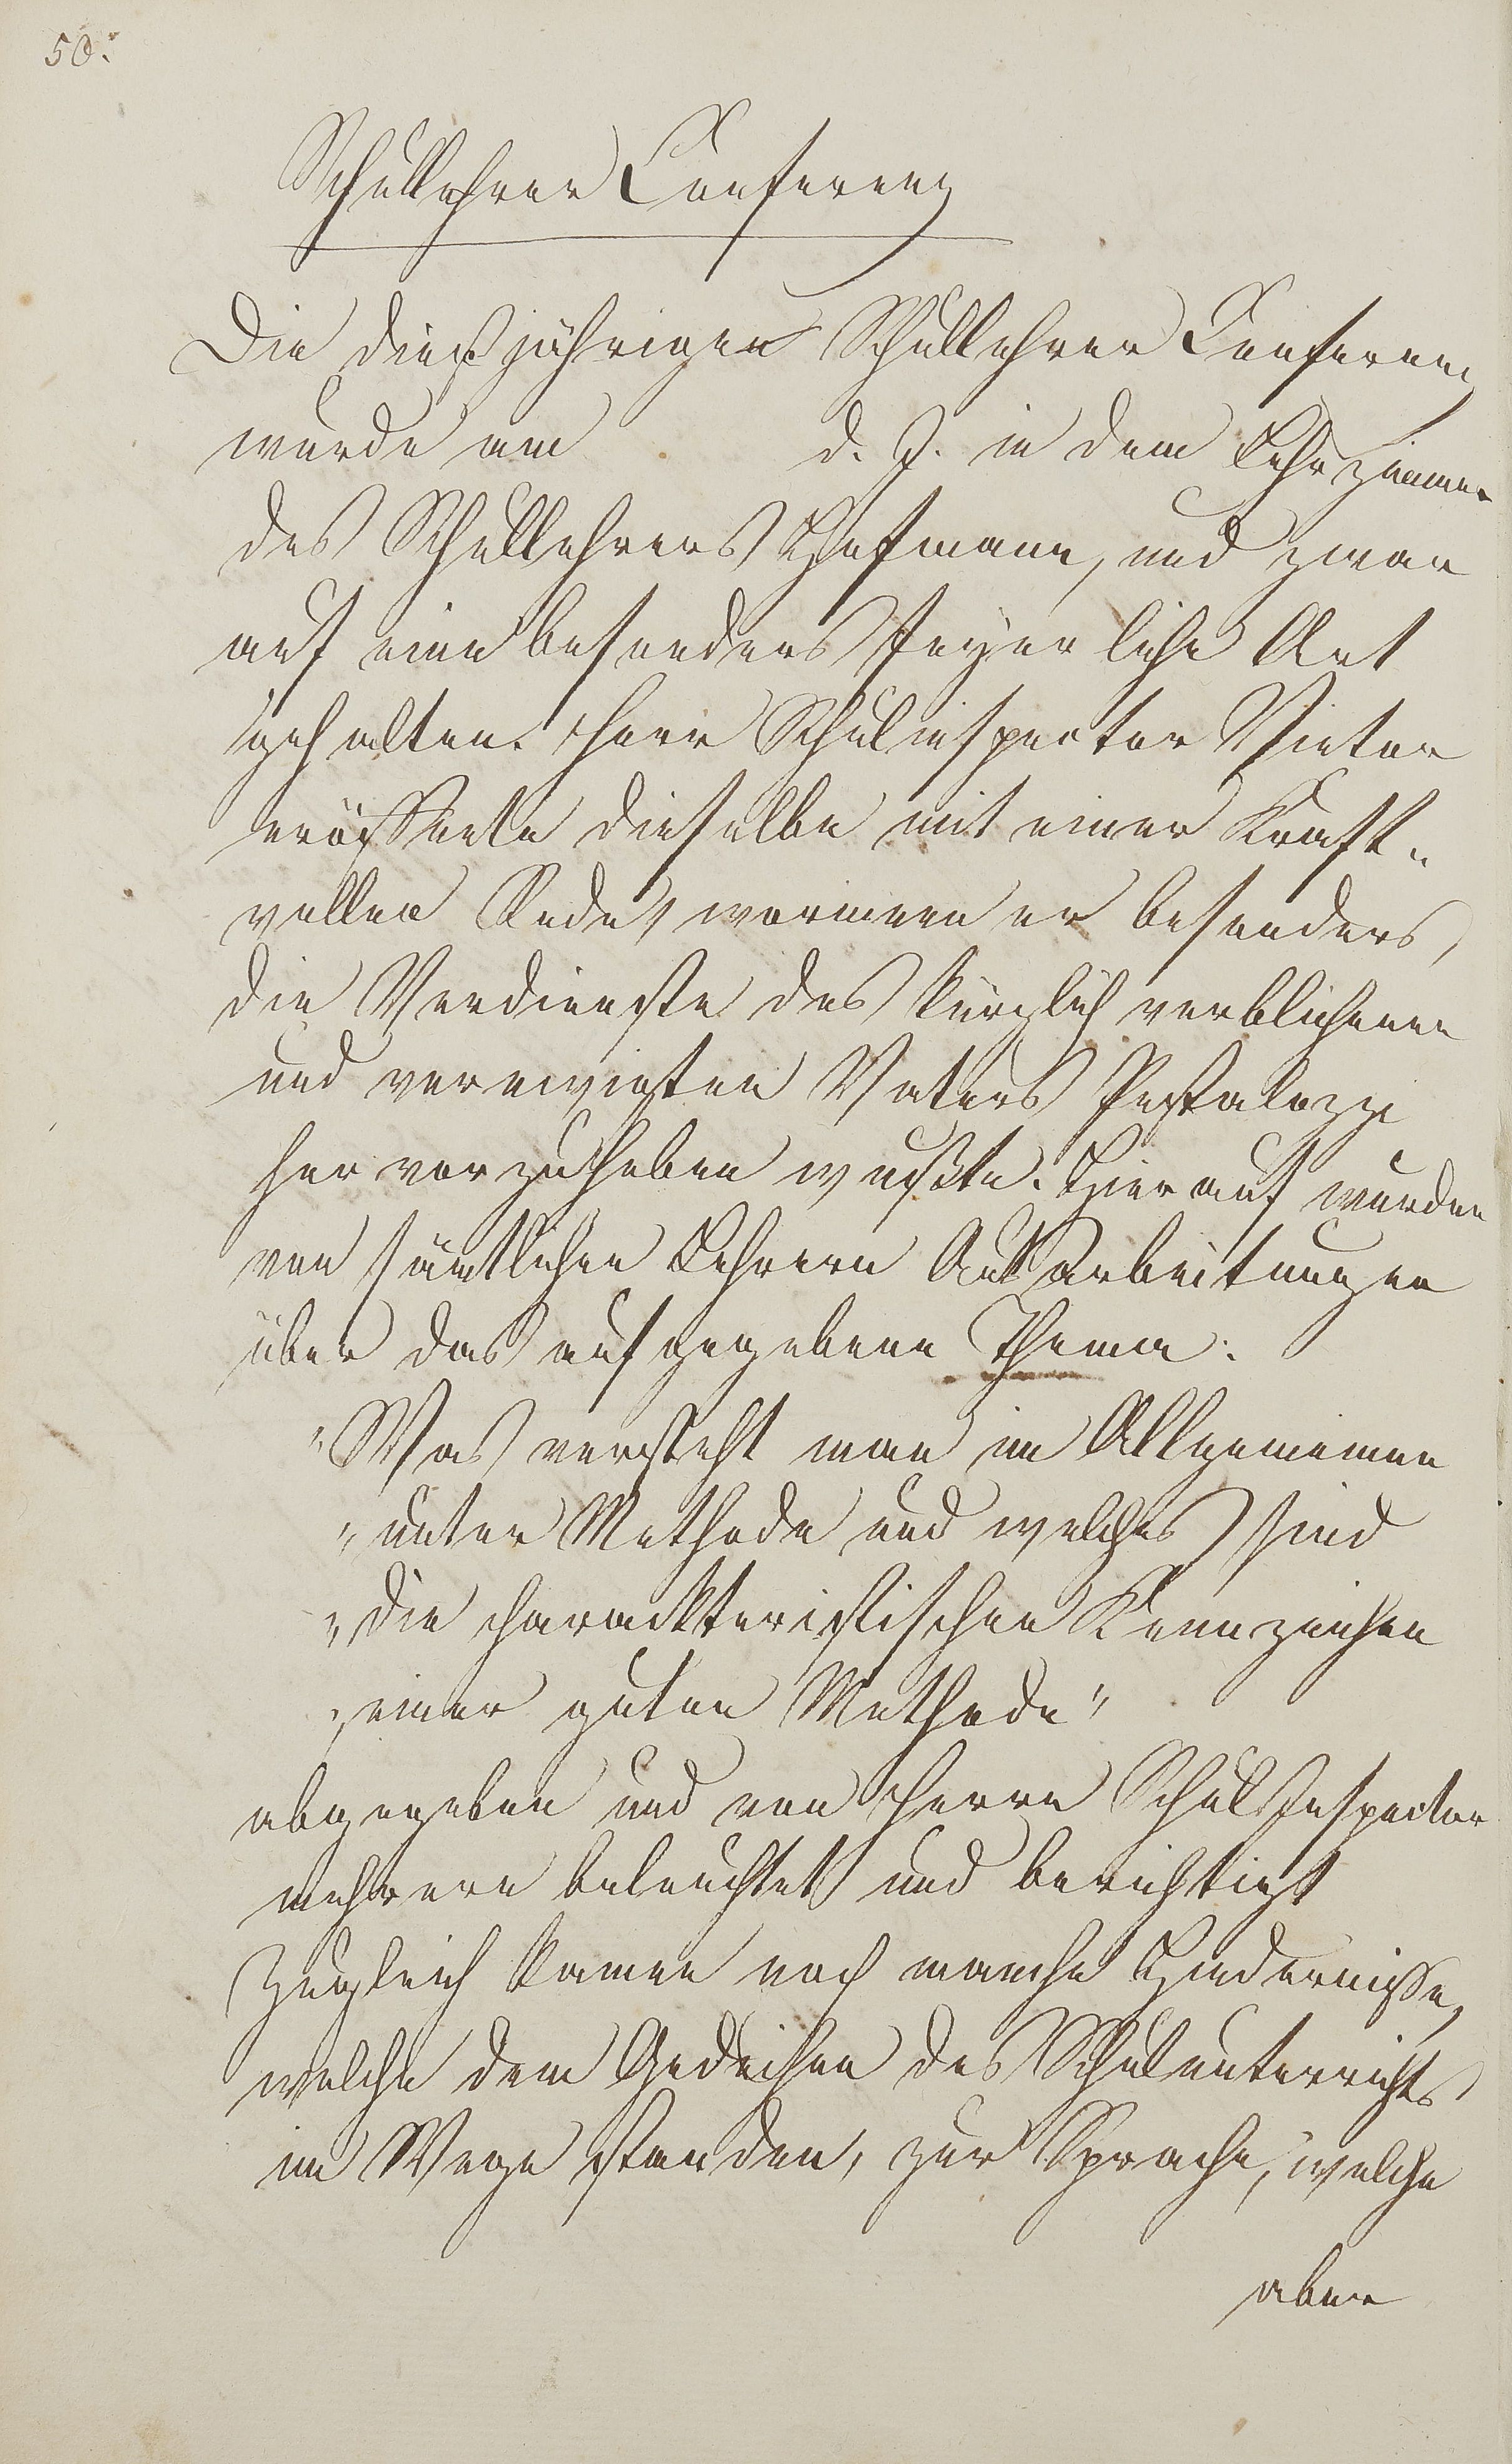 50.
Schullehrer Conferenz
Die dießjährigen Schullehrer Conferenz
wurde am d. J. in dem Lehrzimmer
des Schullehrers Hofmann, und zwar
auf eine besonders feyerliche Art
gehalten. Herr Schulinspector Vietor
eröffnete dieselbe mit einer Kraft-
vollen Rede, worinnen er besonders,
die Verdienste des kürzlich verblichenen
und verewigten Vaters Pestalozzi
hervorzuheben wußte. Hierauf wurden
von sämtlichen Lehrern Ausarbeitungen
über das aufgegebene Thema:
"Was versteht man im Allgemeinen
"unter Methode und welches sind
"die charackteristischen Kennzeichen
"einer guten Methode"
abgegeben und von Herrn Schul Inspector
mehrere beleuchtet und berichtigt
Zugleich kamen noch manche Hindernisse,
welche dem Gedeihen des Schulunterrichts
im Wege standen, zur Sprache, welche
aber